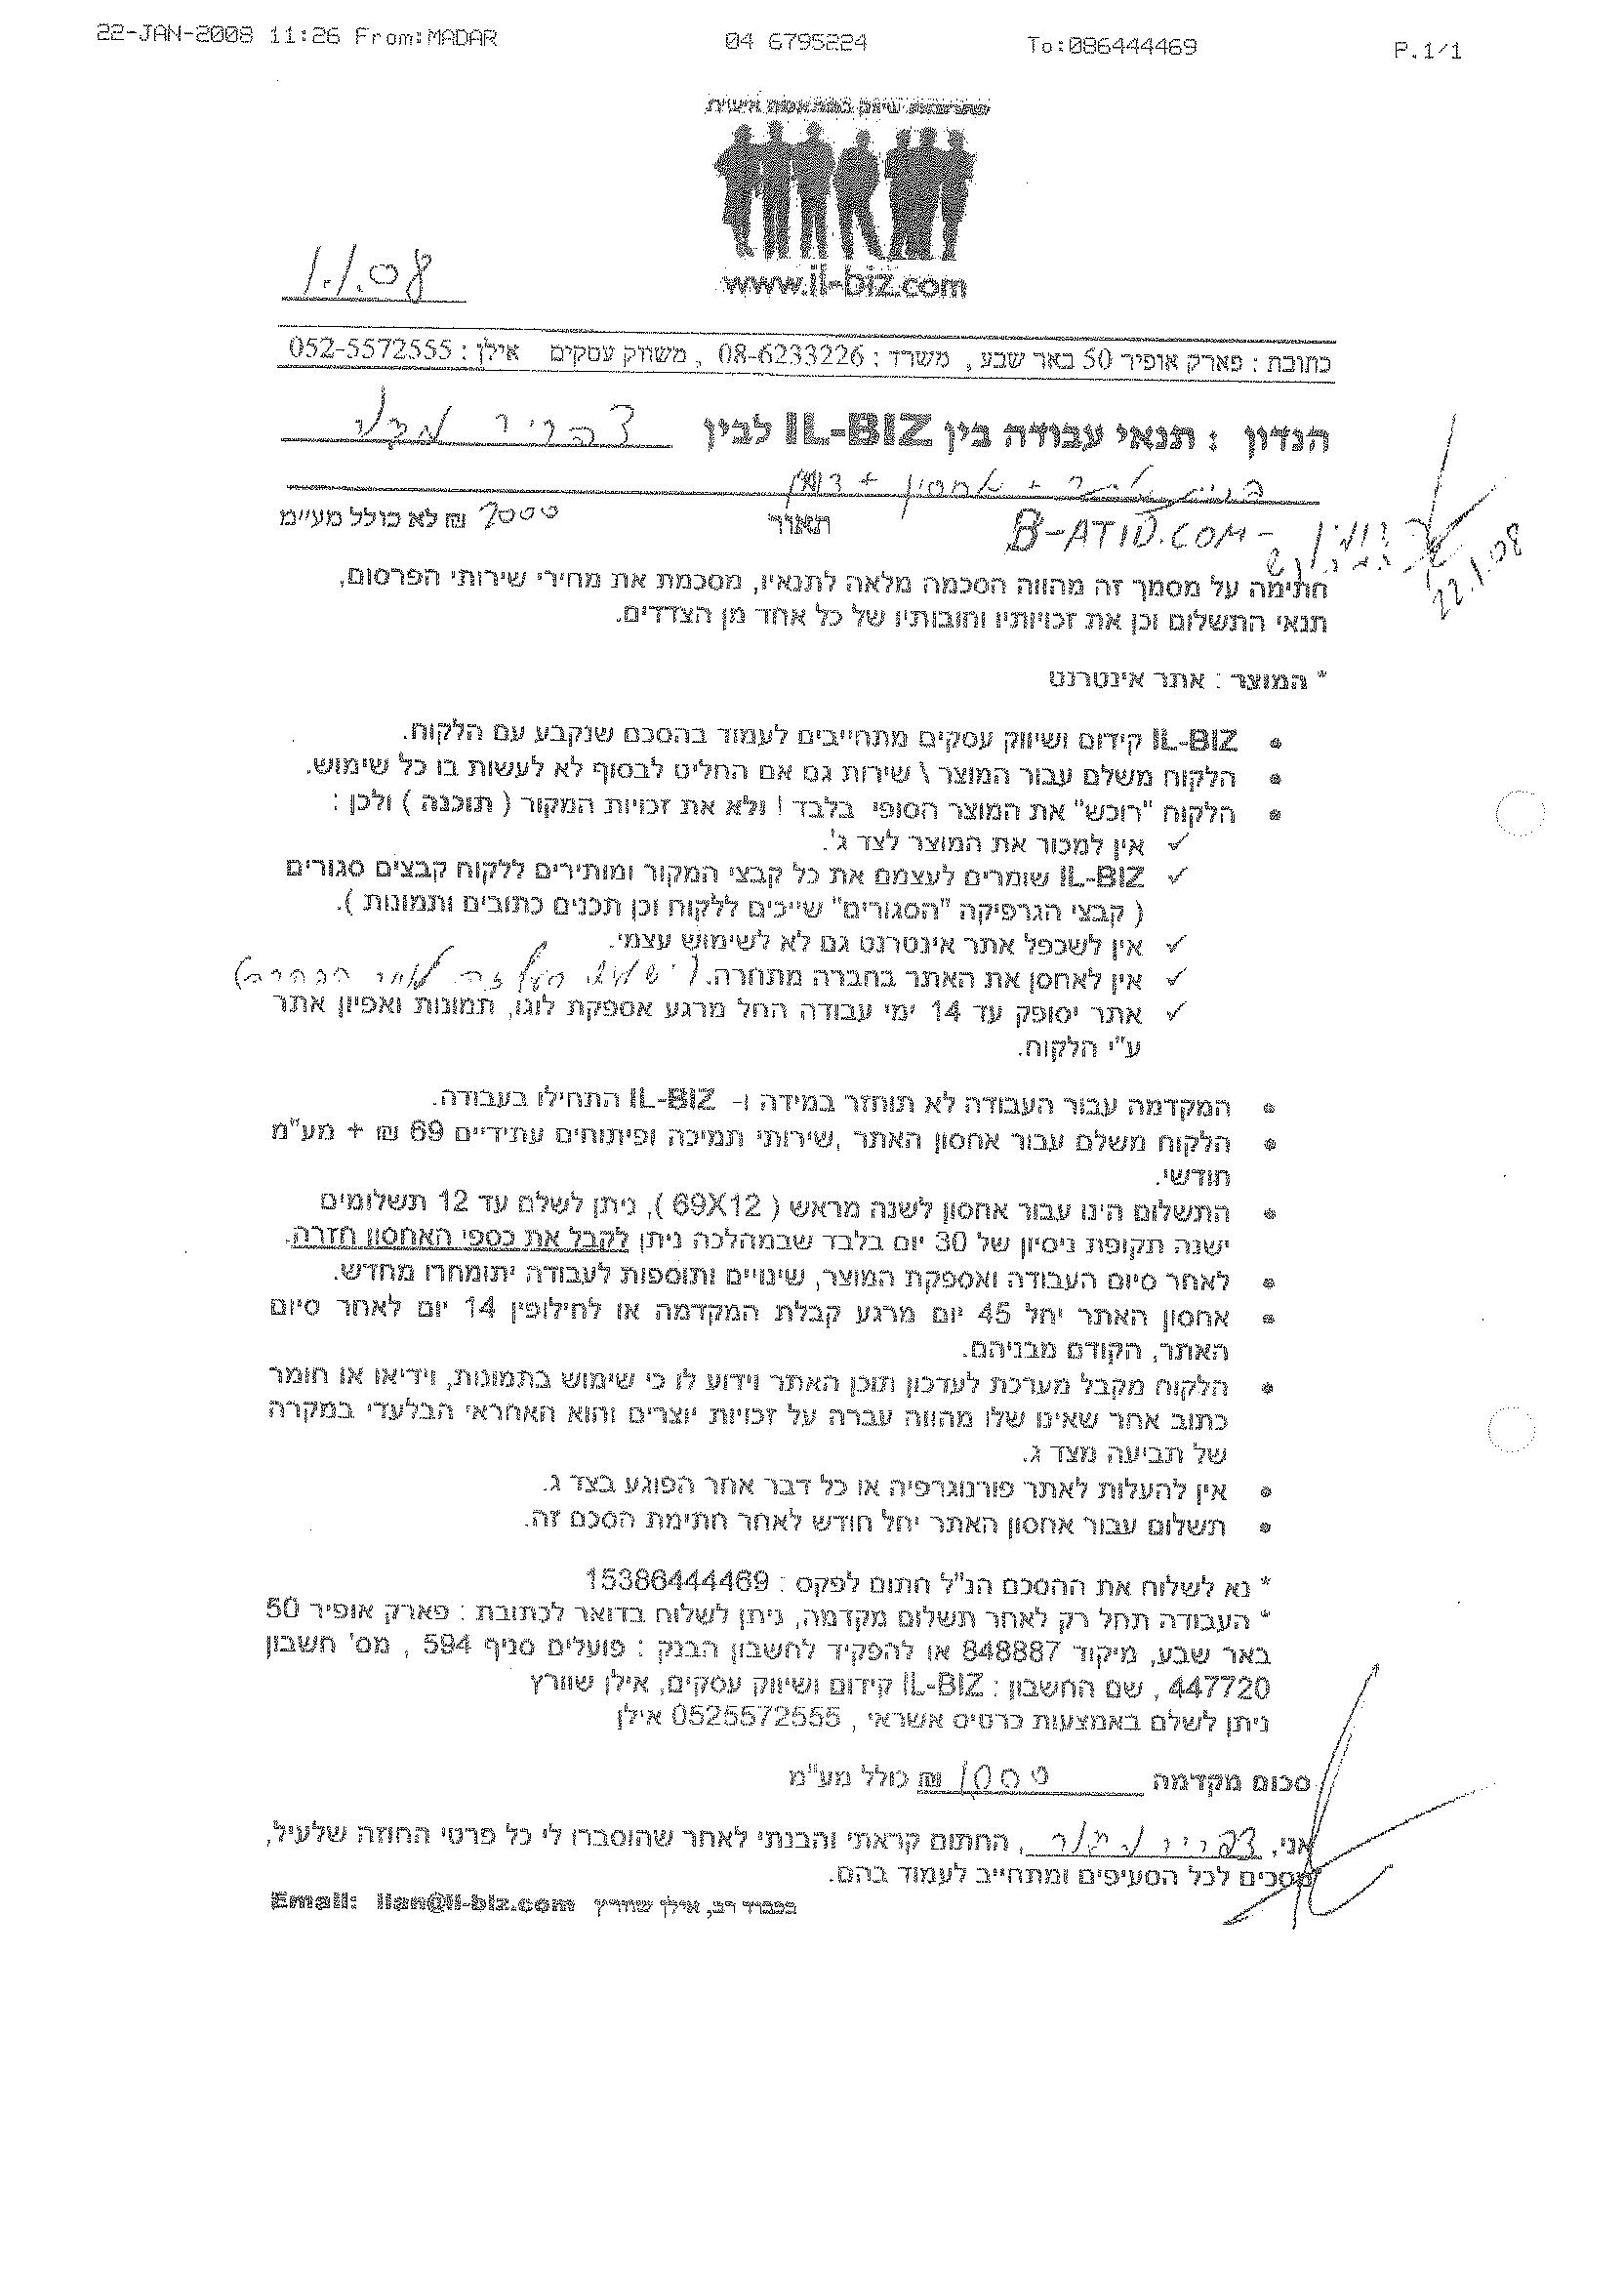 22-JAN-2008 11:26 From:MADAR 04 6795224 To:086444469 P.1/1
www.il-biz.com
1.1.08
כתובת : פארק אופיר 50 באר שבע , משרד : 08-6233226 , משווק עסקים אילן : 052-5572555
הנדון : תנאי עבודה בין IL-BIZ לבין
+ אחסון +
B-ATID.COM - תאור 7000 ₪ לא כולל מע״מ
22.1.08
חתימה על מסמך זה מהווה הסכמה מלאה לתנאיו, מסכמת את מחירי שירותי הפרסום,
תנאי התשלום וכן את זכויותיו וחובותיו של כל אחד מן הצדדים.
* המוצר : אתר אינטרנט
• IL-BIZ קידום ושיווק עסקים מתחייבים לעמוד בהסכם שנקבע עם הלקוח.
• הלקוח משלם עבור המוצר \ שירות גם אם החליט לבסוף לא לעשות בו כל שימוש.
• הלקוח "רוכש" את המוצר הסופי בלבד ! ולא את זכויות המקור ( תוכנה ) ולכן :
✓ אין למכור את המוצר לצד ג'.
✓ IL-BIZ שומרים לעצמם את כל קבצי המקור ומותירים ללקוח קבצים סגורים
( קבצי הגרפיקה "הסגורים" שייכים ללקוח וכן תכנים כתובים ותמונות ).
✓ אין לשכפל אתר אינטרנט גם לא לשימוש עצמי.
✓ אין לאחסן את האתר בחברה מתחרה.
✓ אתר יסופק עד 14 ימי עבודה החל מרגע אספקת לוגו, תמונות ואפיון אתר
ע"י הלקוח.
• המקדמה עבור העבודה לא תוחזר במידה ו- IL-BIZ התחילו בעבודה.
• הלקוח משלם עבור אחסון האתר ,שירותי תמיכה ופיתוחים עתידיים 69 ₪ + מע"מ
חודשי.
• התשלום הינו עבור אחסון לשנה מראש ( 69X12 ), ניתן לשלם עד 12 תשלומים
ישנה תקופת ניסיון של 30 יום בלבד שבמהלכה ניתן לקבל את כספי האחסון חזרה.
• לאחר סיום העבודה ואספקת המוצר, שינויים ותוספות לעבודה יתומחרו מחדש.
• אחסון האתר יחל 45 יום מרגע קבלת המקדמה או לחילופין 14 יום לאחר סיום
האתר, הקודם מבניהם.
• הלקוח מקבל מערכת לעדכון תוכן האתר וידוע לו כי שימוש בתמונות, וידיאו או חומר
כתוב אחר שאינו שלו מהווה עברה על זכויות יוצרים והוא האחראי הבלעדי במקרה
של תביעה מצד ג.
• אין להעלות לאתר פורנוגרפיה או כל דבר אחר הפוגע בצד ג.
• תשלום עבור אחסון האתר יחל חודש לאחר חתימת הסכם זה.
* נא לשלוח את ההסכם הנ"ל חתום לפקס : 15386444469
* העבודה תחל רק לאחר תשלום מקדמה, ניתן לשלוח בדואר לכתובת : פארק אופיר 50
באר שבע, מיקוד 848887 או להפקיד לחשבון הבנק : פועלים סניף 594 , מס' חשבון
447720 , שם החשבון : IL-BIZ קידום ושיווק עסקים, אילן שוורץ
ניתן לשלם באמצעות כרטיס אשראי , 0525572555 אילן
סכום מקדמה 1000 ₪ כולל מע"מ
אני, , החתום קראתי והבנתי לאחר שהוסברו לי כל פרטי החוזה שלעיל,
מסכים לכל הסעיפים ומתחייב לעמוד בהם.
בכבוד רב, אילן שוורץ Email: ilan@il-biz.com